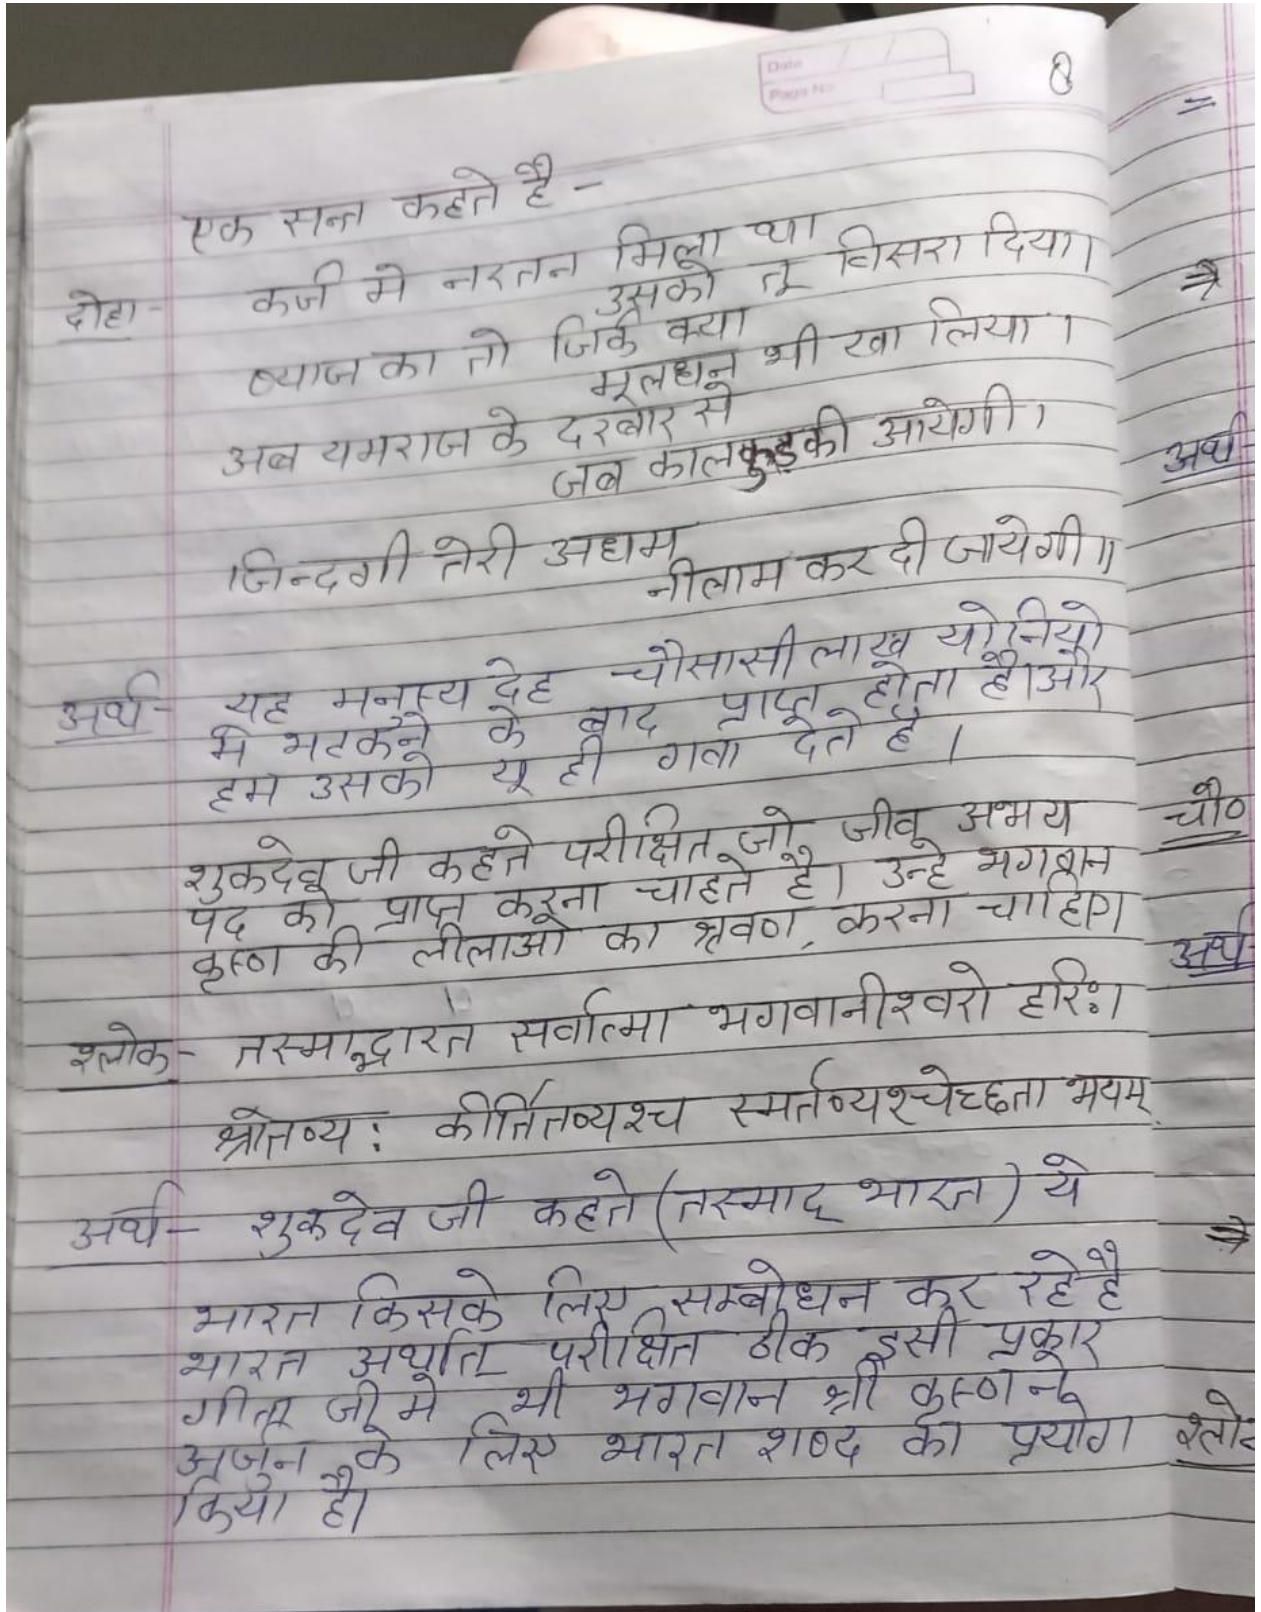 Date / /
Page No.
8
एक सन्त कहते है -
दोहा - कर्ज मे नरतन मिला था
उसको तू बिसरा दिया।
ब्याज का तो जिर्क क्या
मूलधन भी खा लिया ।
अब यमराज के दरबार से
जब कालकुड़की आयेगी।
जिन्दगी तेरी अधाम
नीलाम कर दी जायेगी॥
अर्थ - यह मनुस्य देह चौसासी लाख योनियो
मे भटकने के बाद प्राप्त होता है।और
हम उसको यू ही गवा देते है ।
शुकदेव जी कहते परीक्षित जो जीव अभय
पद को प्राप्त करना चाहते है। उन्हे भगवान
कृस्ण की लीलाओ का श्रवण करना चाहिए।
श्लोक - तस्माद्भारत सर्वात्मा भगवानीश्वरो हरिः।
श्रोतव्य: कीर्तितव्यश्च स्मर्तव्यश्चेच्छता भयम्
अर्थ - शुकदेव जी कहते (तस्माद् भारत) ये
भारत किसके लिए सम्बोधन कर रहे है
भारत अर्थात् परीक्षित ठीक इसी प्रकार
गीता जी मे भी भगवान श्री कृस्ण ने
अर्जुन के लिए भारत शब्द का प्रयोग
किया है।
=
⇒
अर्थ
चौ०
अर्थ
⇒
श्लो